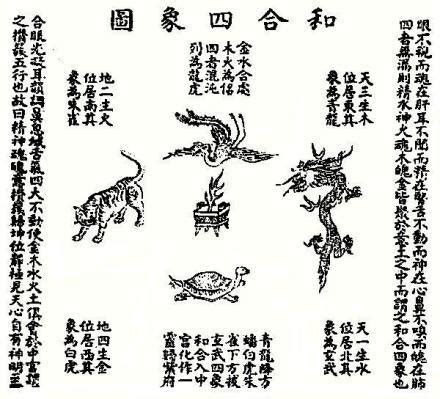 和合四象圖
眼不視而魂在肝耳不聞而精在腎舌不動而神在心鼻不嗅而魄在肺
四者無漏則精水神火魂木魄金皆聚於意土之中而謂之和合四象也
天三生木
位居東其
象為青龍
金水合處
木火為侶
四者混沌
列為龍虎
地二生火
位居南其
象為朱雀
天一生水
位居北其
象為玄武
青龍降方
蟠伯虎朱
雀下方被
玄武四象
和合入中
宮化作一
靈歸紫府
地四生金
位居西其
象為白虎
合眼光凝耳韻調鼻息緘舌氣四大不動使金木水火土俱會於中宮謂
之攢簇五行也故曰精神魂魄意攢簇歸坤位靜極見天心自有神明至